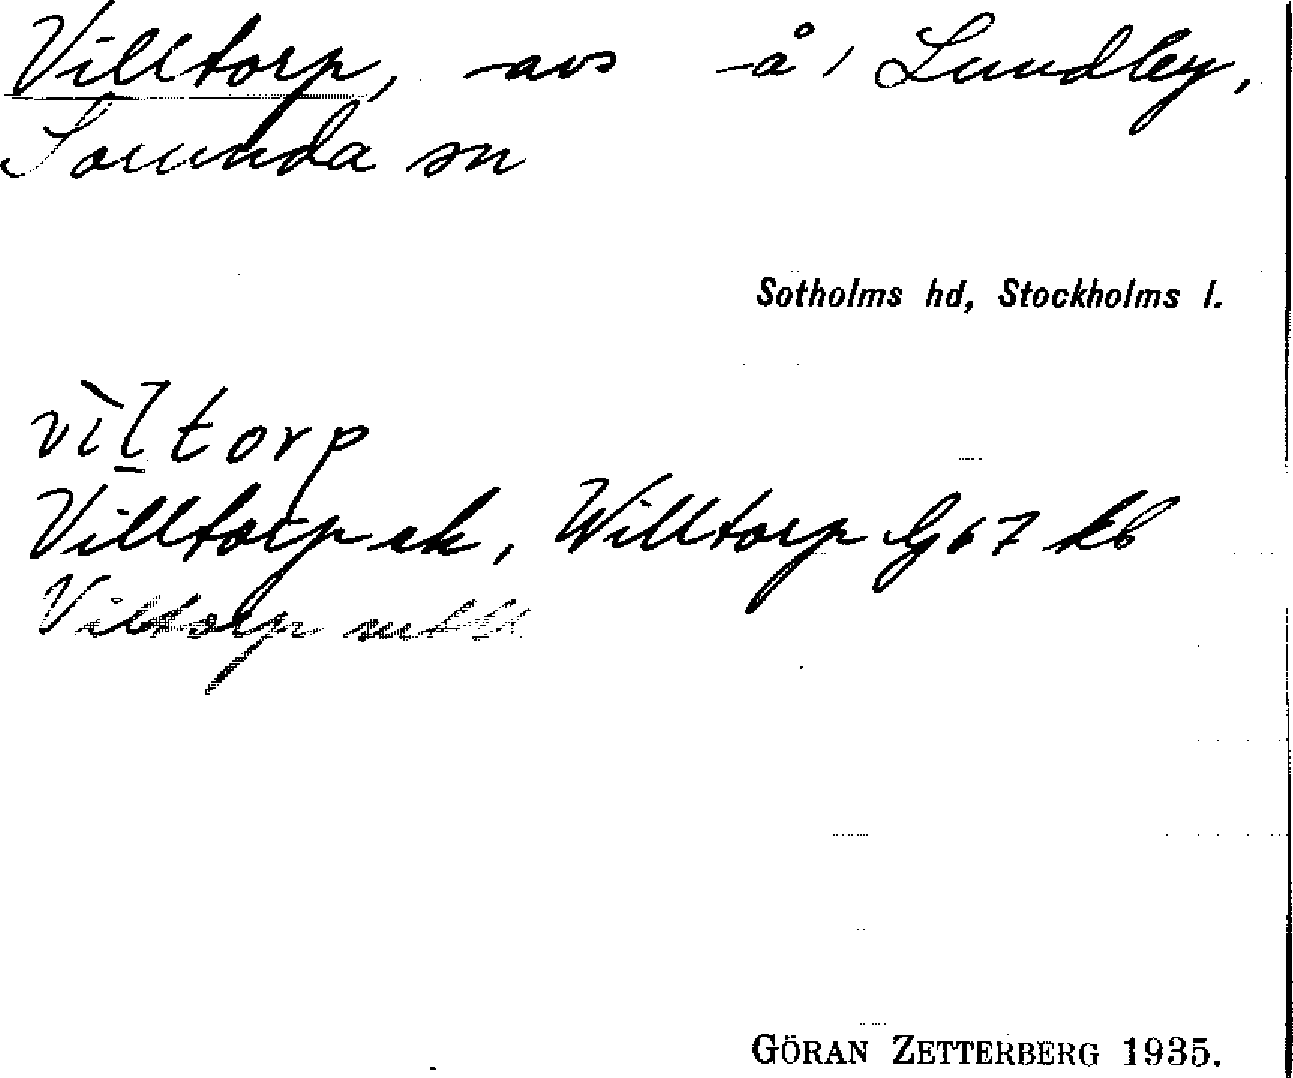 Villtorp, avs å Lundby,
Sorunda sn
Sotholms hd, Stockholms l.
vìltorp
Villtorp ek, Willtorp G 67 kb
Viltorp mtlk
GÖRAN ZETTERBERG 1935.